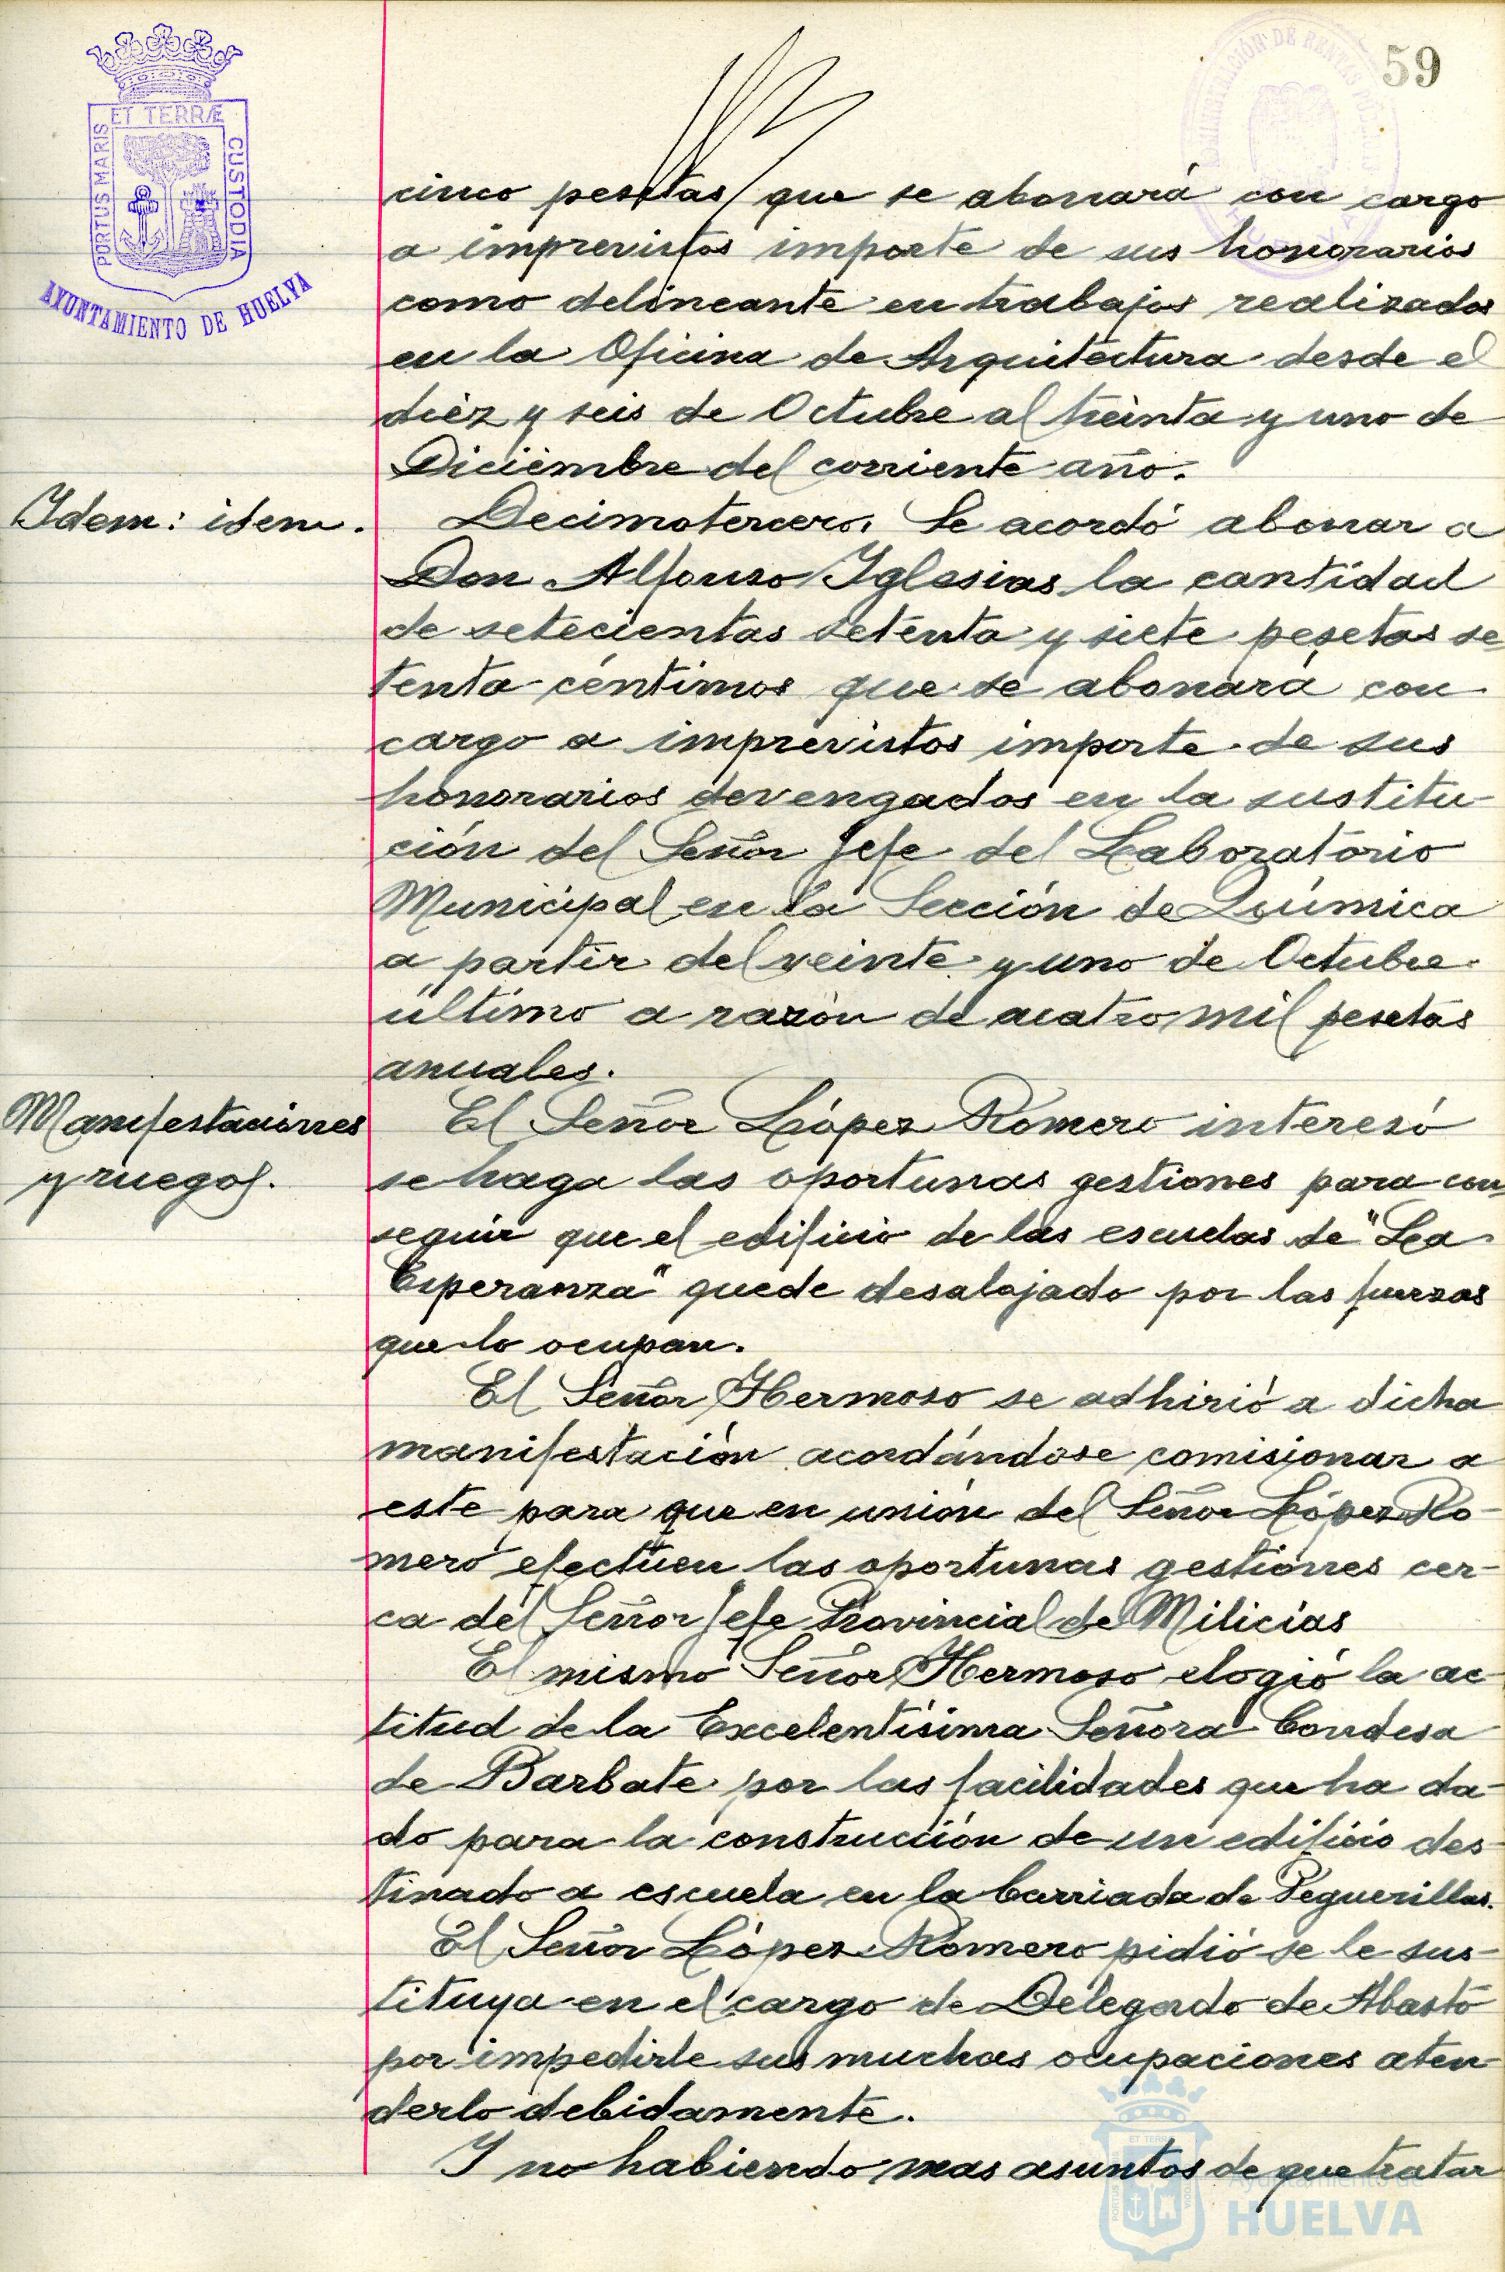 59
ET TERRÆ
PORTUS MARIS
CUSTODIA
AYUNTAMIENTO DE HUELVA
cinco pesetas que se abonará con cargo
a imprevistos importe de sus honorarios
como delineante en trabajos realizados
en la Oficina de Arquitectura desde el
diez y seis de Octubre al treinta y uno de
Diciembre del corriente año.
Idem: idem.
Decimotercero. Se acordó abonar a
Don Alfonso Iglesias la cantidad
de setecientas setenta y siete pesetas se-
tenta céntimos que se abonará con
cargo a imprevistos importe de sus
honorarios devengados en la sustitu-
ción del Señor Jefe del Laboratorio
Municipal en la Sección de Química
a partir del veinte y uno de Octubre
último a razón de cuatro mil pesetas
anuales.
Manifestaciones
y ruegos.
El Señor López Romero interesó
se haga las oportunas gestiones para con
seguir que el edificio de las escuelas de "La
Esperanza" quede desalojado por las fuerzas
que lo ocupan.
El Señor Hermoso se adhirió a dicha
manifestación acordándose comisionar a
este para que en unión del Señor López Ro-
mero efectúen las oportunas gestiones cer-
ca del Señor Jefe Provincial de Milicias
El mismo Señor Hermoso elogió la ac-
titud de la Excelentísima Señora Condesa
de Barbate por las facilidades que ha da-
do para la construcción de un edificio des-
tinado a escuela en la barriada de Peguerillas.
El Señor López Romero pidió se le sus-
tituya en el cargo de Delegado de Abasto
por impedirle sus muchas ocupaciones aten-
derlo debidamente.
Y no habiendo mas asuntos de que tratar
Ayuntamiento de
HUELVA